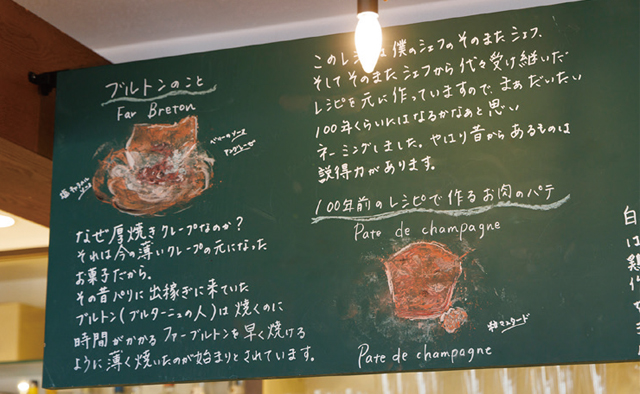 ブルトンのこと
Far Breton
なぜ厚焼きクレープなのか?
それは今の薄いクレープの元になった
お菓子だから。
その昔パリに出稼ぎに来ていた
ブルトン(ブルターニュの人)は焼くのに
時間がかかるファーブルトンを早く焼ける
ように薄く焼いたのが始まりとされています。
このレシピは僕のシェフのそのまたシェフ、
そしてそのまたシェフから代々受け継いだ
レシピを元に作っていますので、まぁだいたい
100年くらいにはなるかなぁと思い
ネーミングしました。やはり昔からあるものは
説得力があります。
100年前のレシピで作るお肉のパテ
Pate de champagne
粒マスタード
Pate de champagne
白
は
鶏
作